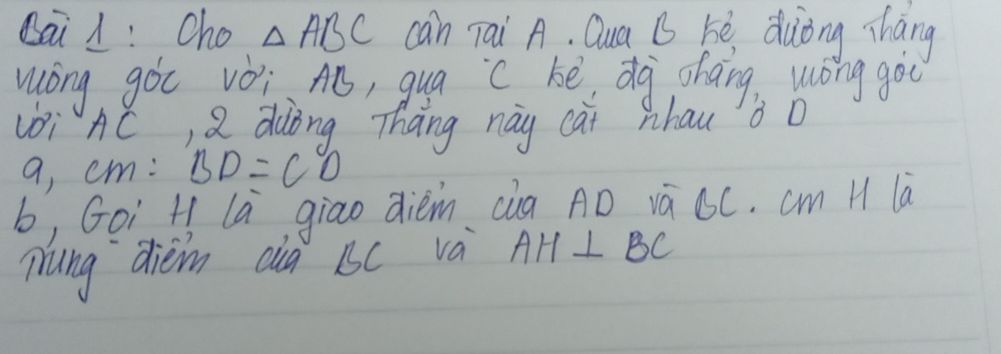 Bài 1 : Cho Δ ABC cân tại A . Qua B kẻ đường thẳng
vuông góc với AB, qua C kẻ đg thẳng vuông góc
với AC , 2 đường thẳng này cắt nhau ở D
a, cm : BD = CD
b, Gọi H là giao điểm của AD và BC. cm H là
trung điểm của BC và AH ⊥ BC